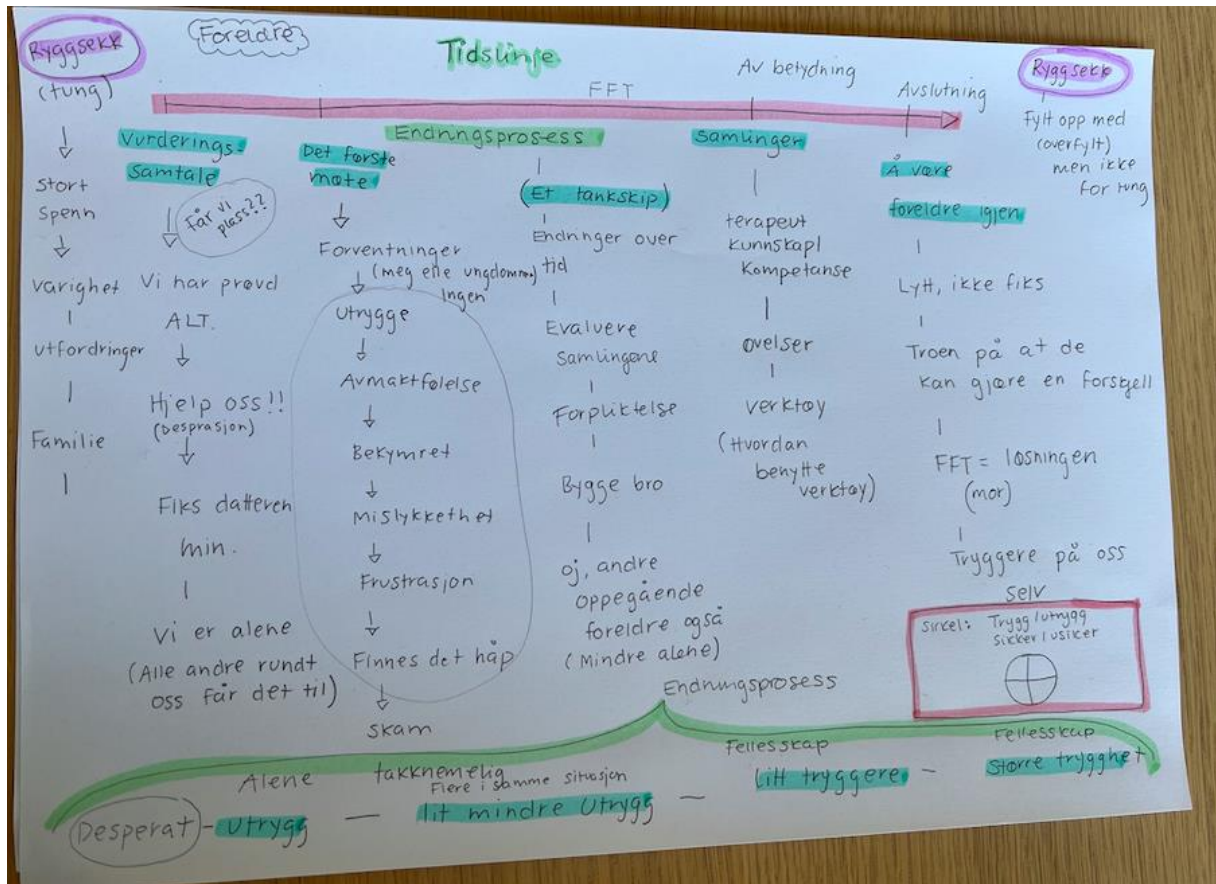 Ryggsekk
(tung)
Stort
Spenn
Varighet
Utfordringer
Familie
Foreldre
Tidslinje
FFT
Av betydning
Avslutning
Vurderings-
Samtale
Får vi
plass??
Vi har prøvd
ALT.
Hjelp oss!!
(Desprasjon)
Fiks datteren
min.
Vi er alene
(Alle andre rundt
oss får det til)
Det første
møte
Forventninger
(meg elle ungdommen)
Ingen
Utrygge
Avmaktfølelse
Bekymret
Mislykkethet
Frustrasjon
Finnes det håp
Skam
Endringsprosess
(Et tankskip)
Endringer over
tid
Evaluere
Samlingene
Forpliktelse
Bygge bro
oj, andre
oppegående
foreldre også
(Mindre alene)
Samlinger
terapeut
kunnskap/
Kompetanse
øvelser
verktøy
(Hvordan
benytte
verktøy)
Å være
foreldre igjen
Lytt, ikke fiks
Troen på at de
kan gjøre en forskjell
FFT = løsningen
(mor)
Tryggere på oss
Selv
Sirkel: Trygg/utrygg
Sikker/usikker
Ryggsekk
Fylt opp med
(overfylt)
men ikke
for tung
Endringsprosess
Alene
takknemelig
Flere i samme situasjon
Fellesskap
Fellesskap
Desperat - Utrygg — lit mindre Utrygg — litt tryggere — Større trygghet